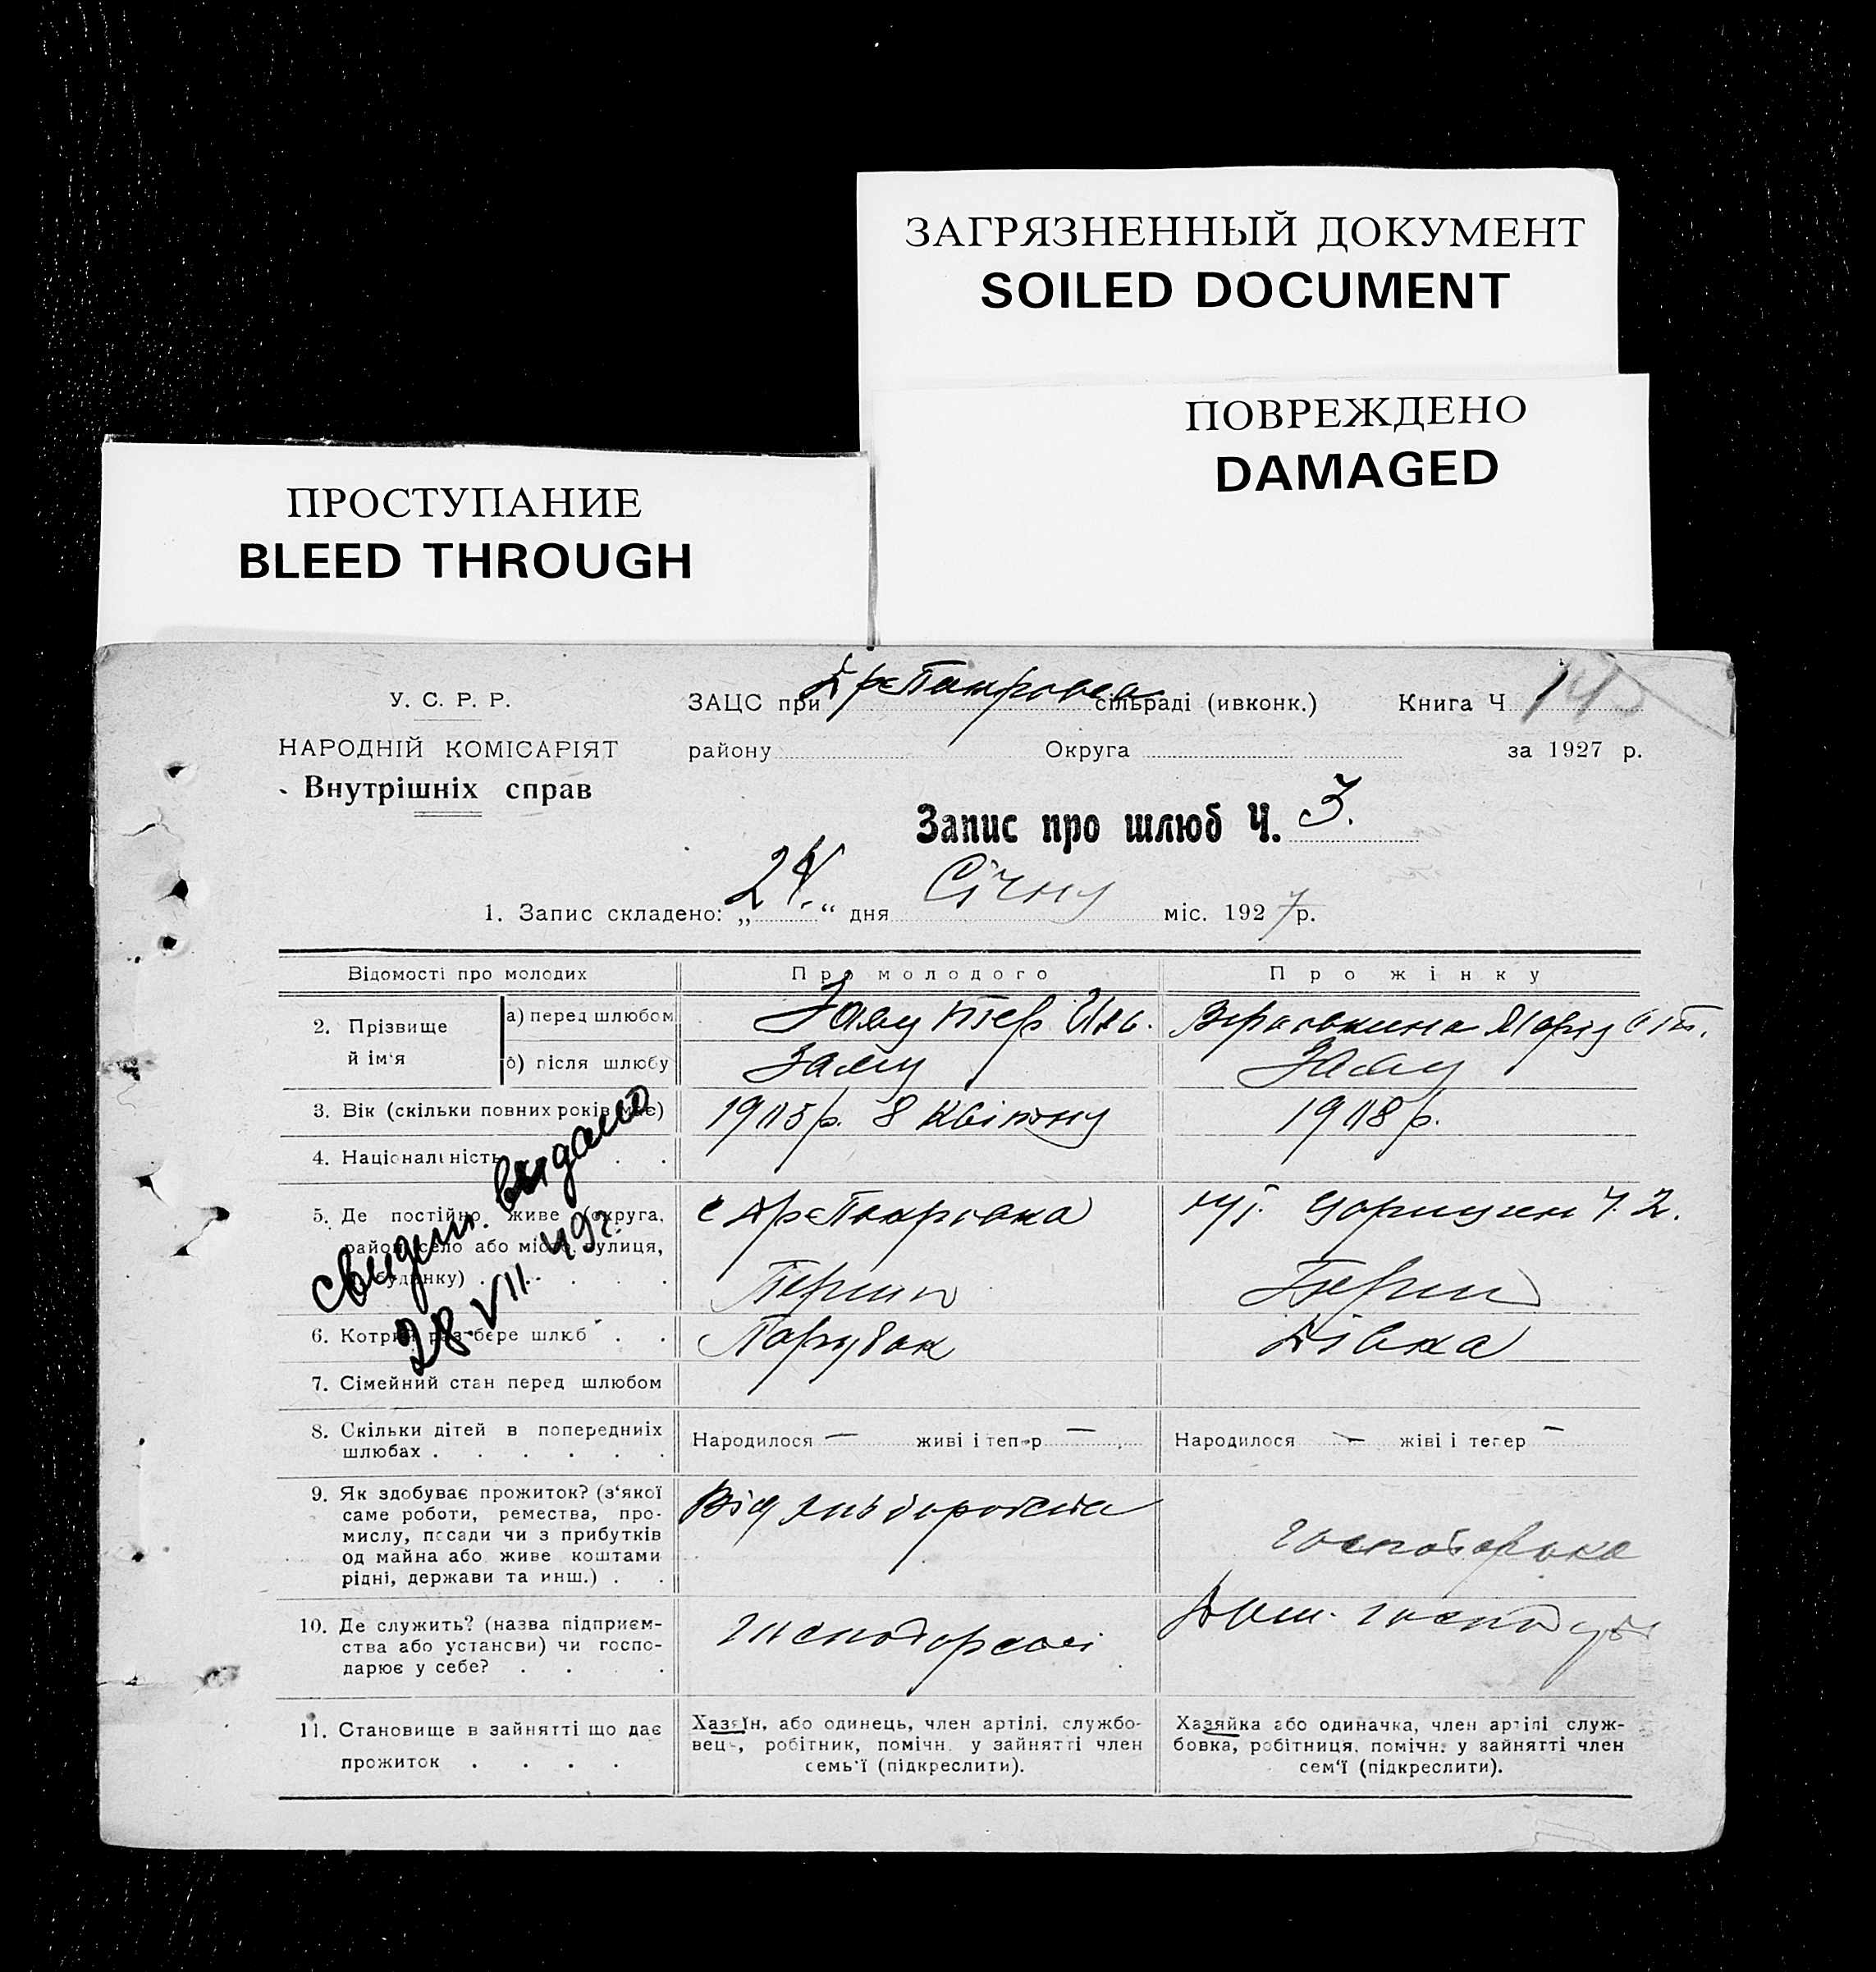 ЗАГРЯЗНЕННЫЙ ДОКУМЕНТ
SOILED DOCUMENT
ПОВРЕЖДЕНО
DAMAGED
ПРОСТУПАНИЕ
BLEED THROUGH
У. С. Р. Р.
НАРОДНІЙ КОМІСАРІЯТ
Внутрішніх справ
ЗАЦС при сільраді (ивконк.) Книга Ч
району Округа за 1927 р.
Запис про шлюб Ч. 3.
1. Запис складено: „24.“ дня Січну міс. 1927 р.
Відомості про молодих
Про молодого
Про жінку
2. Прізвище й ім'я
а) перед шлюбом
б) після шлюбу
3. Вік (скільки повних років має)
1915 р. 8 Квітну
1918 р.
4. Національність
5. Де постійно живе (округа,
район, село або місто, вулиця,
будинку)
Перший
Перший
6. Котрий раз бере шлюб
Парубок
Дівка
7. Сімейний стан перед шлюбом
8. Скільки дітей в попередніх
шлюбах
Народилося — живі і тепер —
Народилося — живі і тепер —
9. Як здобуває прожиток? (з'якої
саме роботи, ремества, про-
мислу, посади чи з прибутків
од майна або живе коштами
рідні, держави та инш.)
Від
10. Де служить? (назва підприєм-
ства або установи) чи госпо-
дарює у себе?
11. Становище в зайнятті що дає
прожиток
Хазяїн, або одинець, член артілі, службо-
вець, робітник, помічн. у зайнятті член
семь'ї (підкреслити).
Хазяйка або одиначка, член артілі служ-
бовка, робітниця, помічн. у зайнятті член
сем'ї (підкреслити).
свидет. выдано
28.VII 49г.